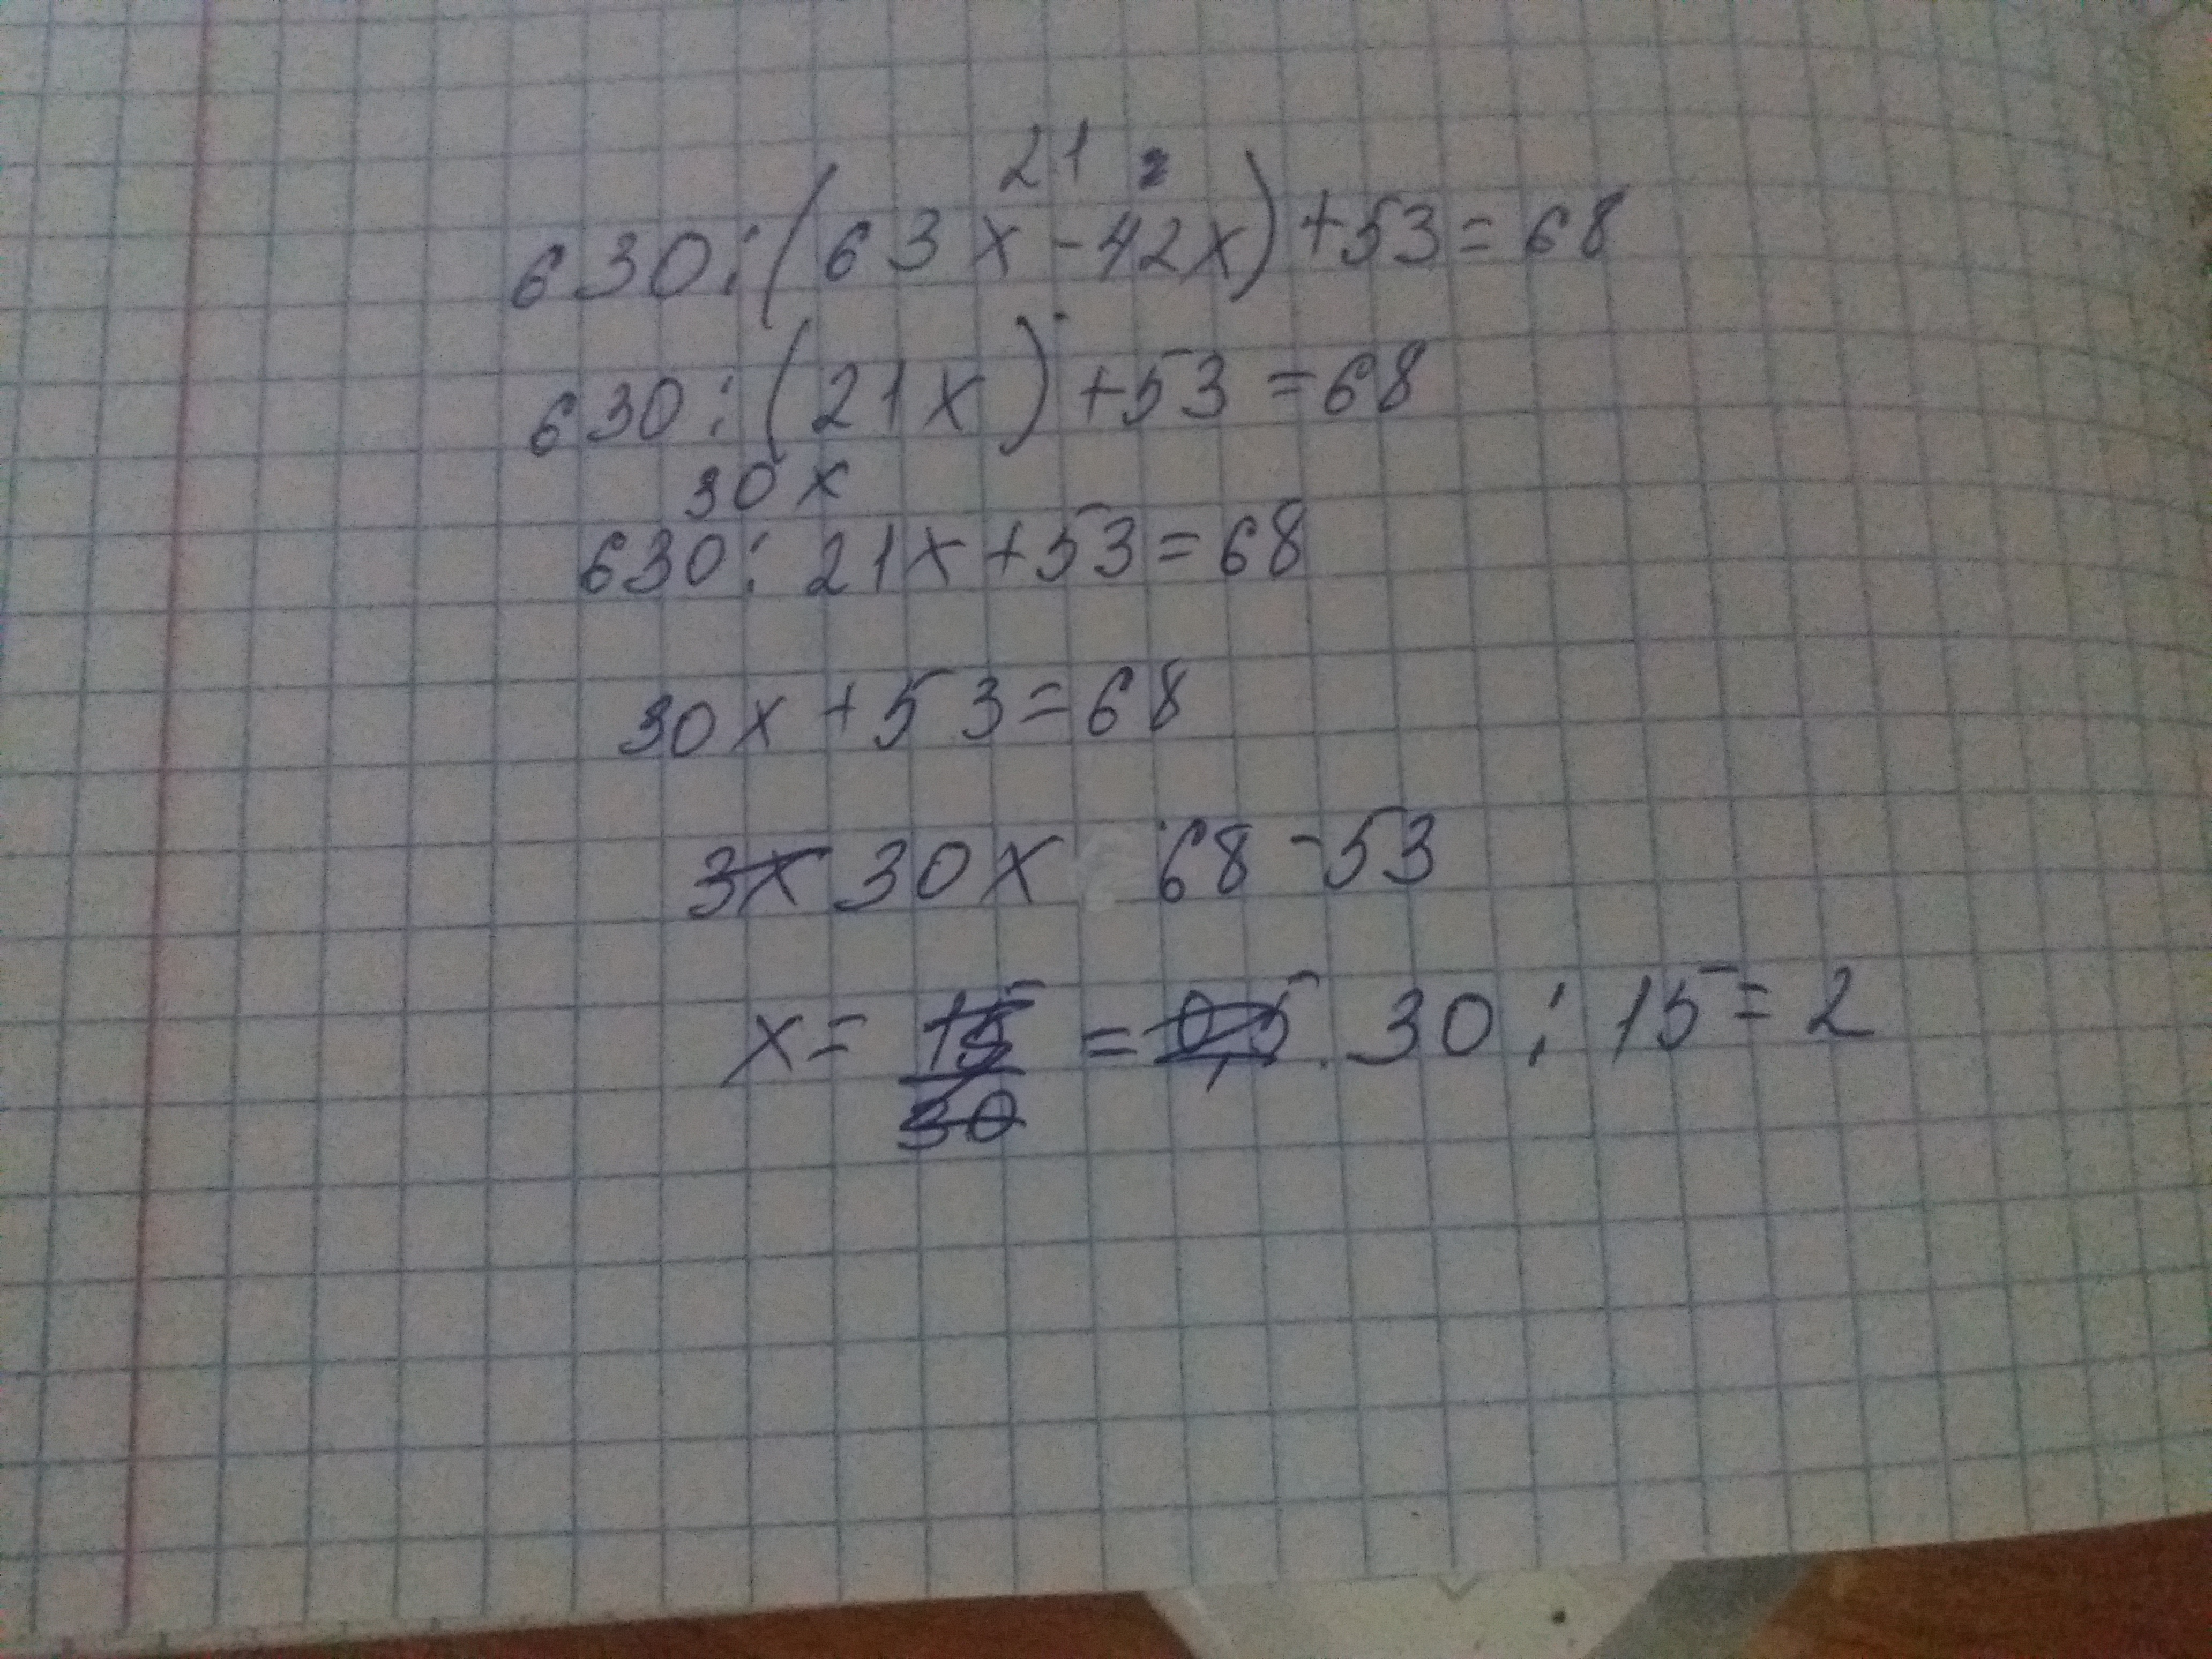 21 2
630:(63x-42x)+53=68
630:(21x)+53=68
30x
630:21x+53=68
30x+53=68
3x 30x 68-53
x= 15/30 = 0,5 30:15=2